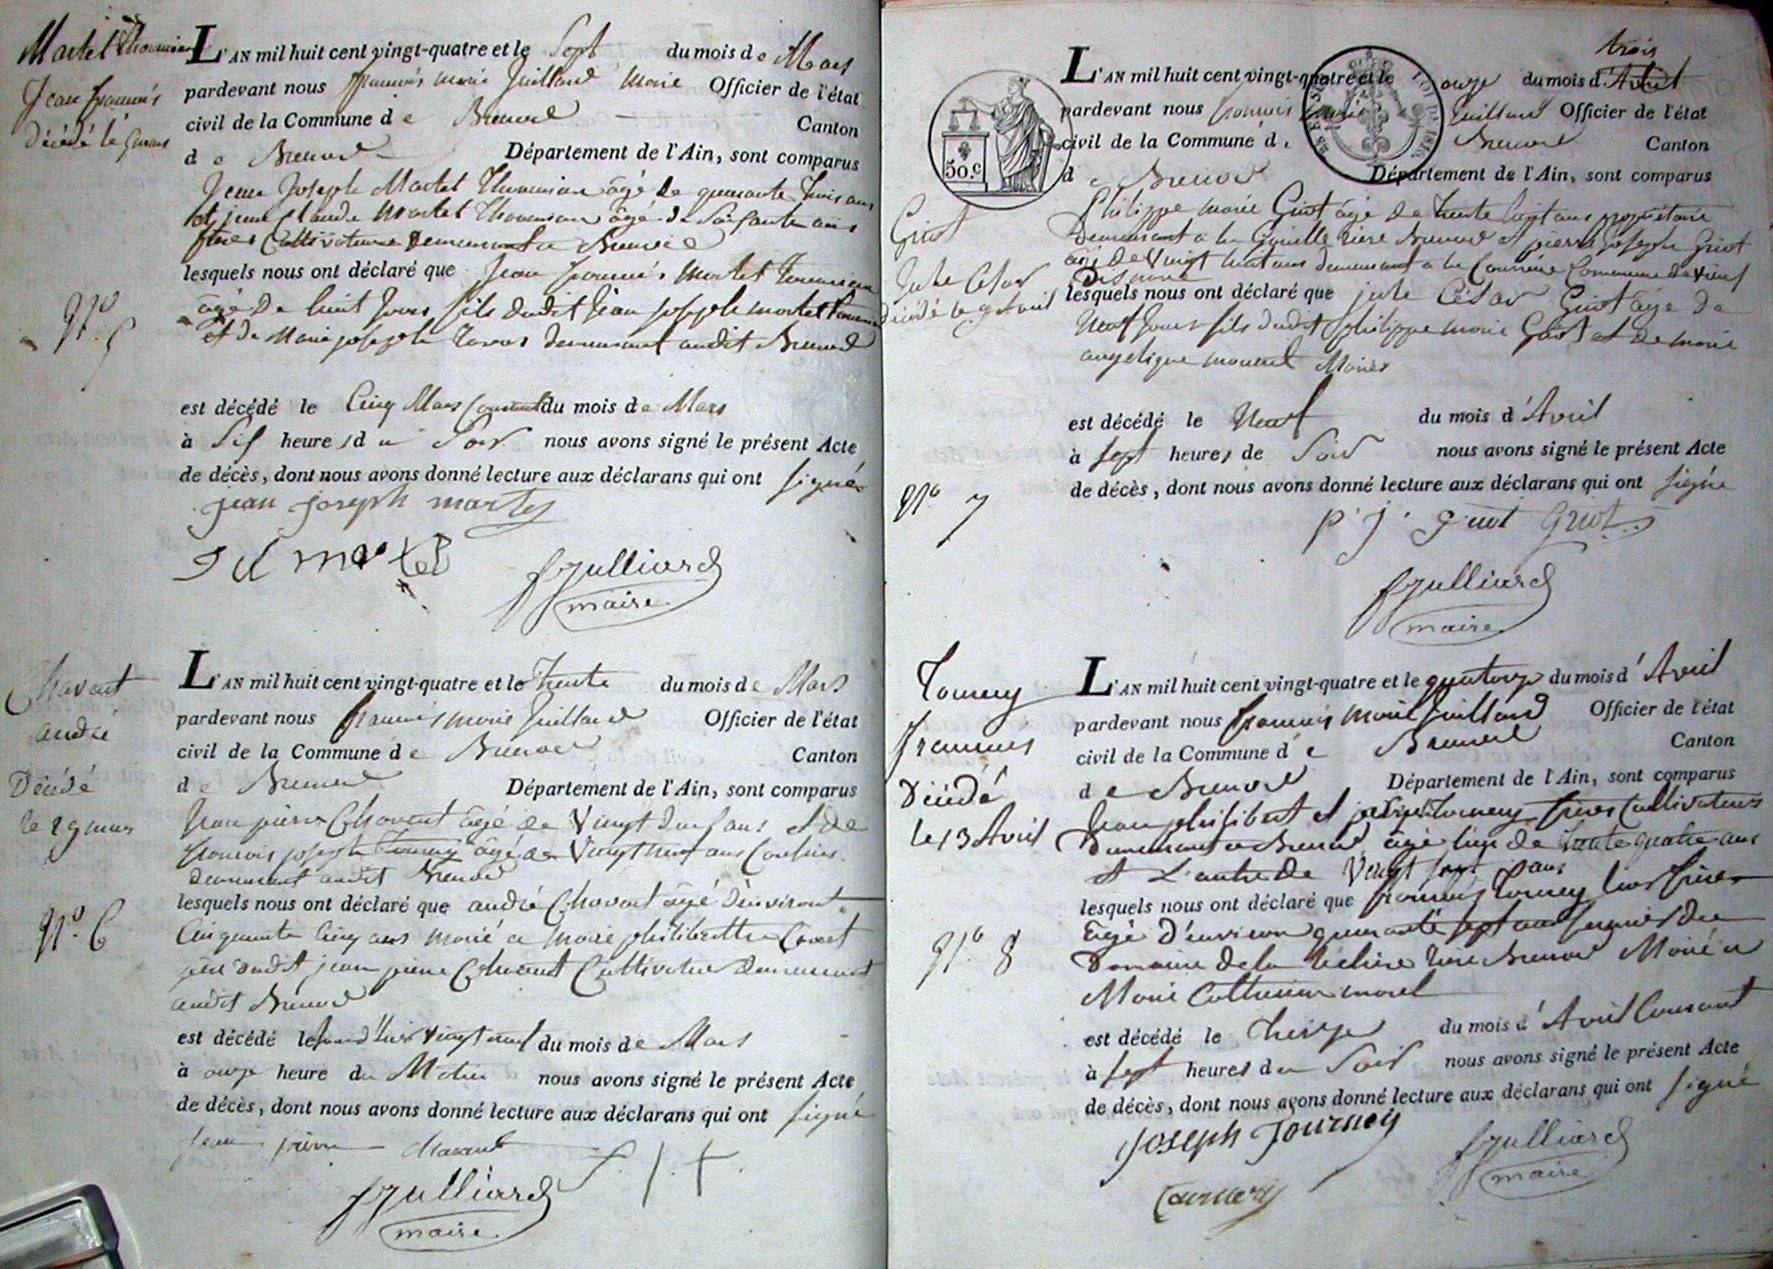 Martel Thoumian
Jean françois
Décédé le 5 mars
N.º 5
L'AN mil huit cent vingt-quatre et le Sept du mois de Mars
pardevant nous françois marie Juilland maire Officier de l'état
civil de la Commune de Brenod Canton
de Brenod Département de l'Ain, sont comparus
Jean Joseph Martel Thoumian âgé de quarante trois ans
et jean Claude Martel Thoumian âgé de Soixante ans
frères Cultivateurs demeurant a Brenod
lesquels nous ont déclaré que Jean françois Martel Toumian
âgé De huit Jours fils dudit Jean Joseph martel
et de Marie josephe demeurant audit Brenod
est décédé le Cinq Mars Courant du mois de Mars
à Six heures du Soir nous avons signé le présent Acte
de décès, dont nous avons donné lecture aux déclarans qui ont signé
jean joseph martel
J Cl martel
fjulliard
maire
Chavant
andré
Décédé
le 29 mars
N.º 6
L'AN mil huit cent vingt-quatre et le Trente du mois de Mars
pardevant nous françois marie Juilland Officier de l'état
civil de la Commune de Brenod Canton
de Brenod Département de l'Ain, sont comparus
Jean pierre Chavant âgé de Vingt ans et de
françois joseph Tourney âgé de Vingt neuf ans Cousins
demeurant audit Brenod
lesquels nous ont déclaré que andré Chavant âgé d'environt
Cinquante Cinq ans marié a marie philibertte
père dudit jean pierre Chavant Cultivateur demeurant
audit Brenod
est décédé le vingt neuf du mois de Mars
à onze heure du Matin nous avons signé le présent Acte
de décès, dont nous avons donné lecture aux déclarans qui ont signé
jean pierre chavant f. j. t.
fjulliard
maire
Griot
Jule César
décédé le 9 Avril
Nº 7
50.c
trois
L'AN mil huit cent vingt-quatre et le onze du mois d'Avril
pardevant nous françois marie Juilland Officier de l'état
civil de la Commune de Brenod Canton
de Brenod Département de l'Ain, sont comparus
Philippe marie Griot âgé de trente Sept ans propriétaire
Demeurant a la Gouille rière Brenod et pierre joseph Griot
âgé de Vingt huit ans demeurant a la Commune de vieux
Disonne
lesquels nous ont déclaré que jule César Griot âgé de
Neuf Jours fils dudit philippe marie Griot et de marie
angelique Mariés
est décédé le Neuf du mois d'Avril
à sept heures de Soir nous avons signé le présent Acte
de décès, dont nous avons donné lecture aux déclarans qui ont signé
p. j. griot Griot
fjulliard
maire
Tourney
françois
Décédé
le 13 Avril
Nº 8
L'AN mil huit cent vingt-quatre et le quatorze du mois d'Avril
pardevant nous françois marie Juilland Officier de l'état
civil de la Commune de Brenod Canton
de Brenod Département de l'Ain, sont comparus
Jean philibert et joseph Tourney frères Cultivateurs
Demeurant a Brenod âgé l'un de trente quatre ans
et L'autre de Vingt sept ans
lesquels nous ont déclaré que françois Tourney leur frère
âgé D'environ quarante sept ans fermier du
Domaine de la rière Brenod Marié a
Marie Catherine morel
est décédé le Treize du mois d'Avril Courant
à sept heures du Soir nous avons signé le présent Acte
de décès, dont nous avons donné lecture aux déclarans qui ont signé
joseph Journey
tournery
fjulliard
maire